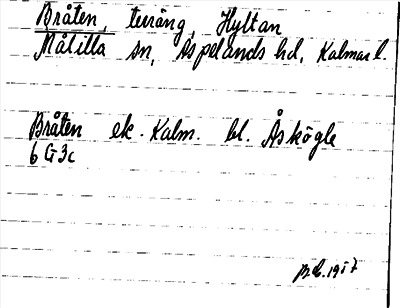 Bråten, teuräng, Hyltan
Målilla sn, Aspelands hd, Kalmar l.
Bråten ek. Kalm. bl. Åskögle
6 G3c